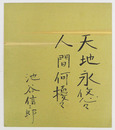 天地永悠々
人間何擾々
池谷信郎